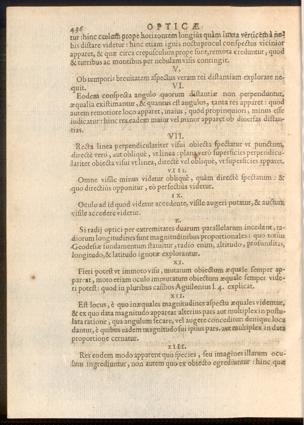 436 OPTICÆ
tur: hinc cœlum prope horizontem longiùs quàm iuxta verticem à nobis distare videtur: hinc etiam ignis noctu procul conspectus vicinior
apparet, & quæ circa crepusculum prope sunt, remota creduntur, quod
& turribus ac montibus per nebulam visis contingit.
V.
Ob temporis breuitatem aspectus veram rei distantiam explorare nequit.
VI.
Eodem conspecta angulo quorum distantiæ non perpenduntur,
æqualia existimantur, & quanta est angulus, tanta res apparet: quod
autem remotiore loco apparet, maius, quod propinquiori, minus esse
iudicatur: hinc res eadem maior vel minor apparet ob diuersas distantias.
VII.
Recta linea perpendiculariter visui obiecta spectatur vt punctum,
directè verò, aut obliquè, vt linea: plana verò superficies perpendiculariter obiecta visui vt linea, directè vel obliquè, vt superficies apparet.
VIII.
Omne visile minus videtur obliquè, quàm directè spectatum: &
quo directiùs opponitur, eò perfectiùs videtur.
IX.
Oculo ad id quod videtur accedente, visile augeri putatur, & auctum
visile accedere videtur.
X.
Si radij optici per extremitates duarum parallelarum incedent, radiorum longitudines sunt magnitudinibus proportionales: quo totius
Geodesiæ fundamentum statuitur, radio enim, altitudo, profunditas,
longitudo, & latitudo ignotæ explorantur.
XI.
Fieri potest vt immoto visu, mutatum obiectum æquale semper appareat, moto etiam oculo immotatum obiectum æquale semper videri potest: quod in pluribus casibus Aguillenius l. 4. explicat.
XII.
Est locus, è quo inæquales magnitudines aspectu æquales videntur,
& ex quo data magnitudo appareat alterius pars aut multiplex in postulata ratione, qua angulum secare, vel augere conceditur: denique locus dantur, è quibus eadem magnitudo sui ipsius pars aut multiplex in data
proportione cernatur.
XIII.
Res eodem modo apparent quò species, seu imagines illarum oculum ingrediuntur, non autem quo ex obiecto egrediuntur: hinc quæ